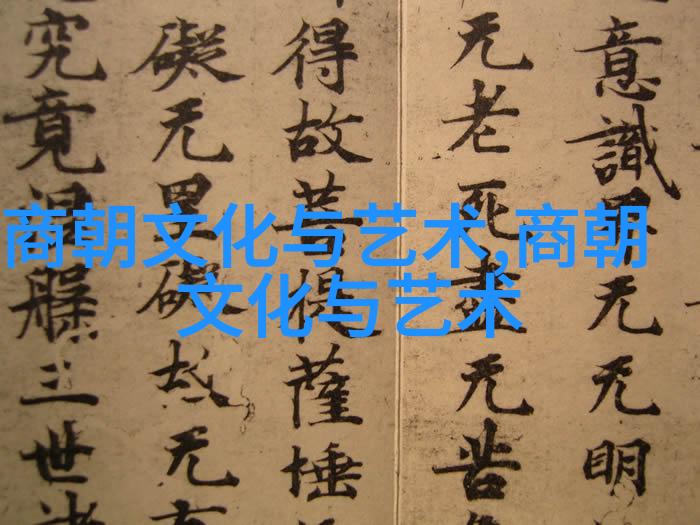 商朝文化与艺术,商朝
文化与艺术
意識界无无明
无老死盡无苦
得故菩提薩埵
礙无罣礙故无有
究竟涅槃三世諸